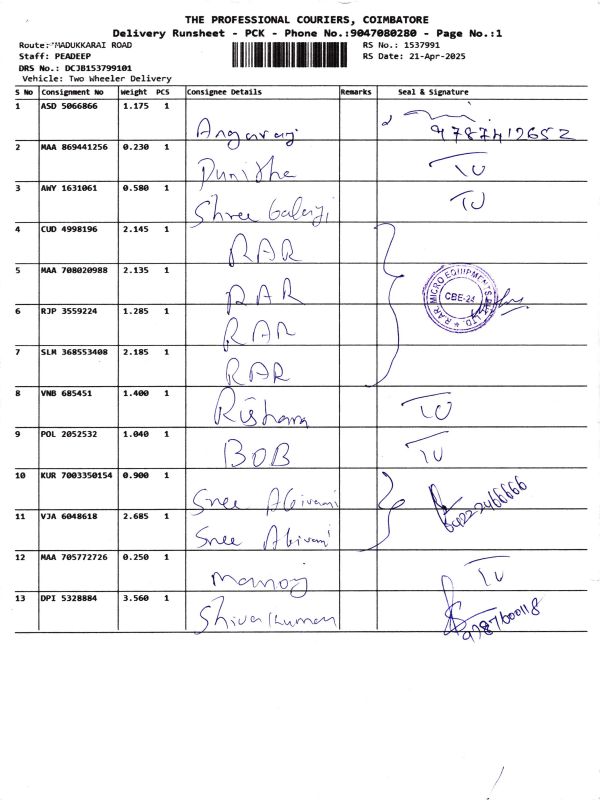 THE PROFESSIONAL COURIERS, COIMBATORE
Delivery Runsheet - PCK - Phone No.:9047080280 - Page No.:1
Route: MADUKKARAI ROAD RS No.: 1537991
Staff: PEADEEP RS Date: 21-Apr-2025
DRS No.: DCJB153799101
Vehicle: Two Wheeler Delivery
S No Consignment No Weight PCS Consignee Details Remarks Seal & Signature
1 ASD 5066866 1.175 1 Angaraj 9787419652
2 MAA 869441256 0.230 1 Punithe TU
3 AWY 1631061 0.580 1 Shree Balaji TU
4 CUD 4998196 2.145 1 RAR
5 MAA 708020988 2.135 1 RAR
RAR MICRO EQUIPMENTS PVT LTD. CBE-24
6 RJP 3559224 1.285 1 RAR
7 SLM 368553408 2.185 1 RAR
8 VNB 685451 1.400 1 Rishana TU
9 POL 2052532 1.040 1 BOB TU
10 KUR 7003350154 0.900 1 Sree Abirami 04222466666
11 VJA 6048618 2.685 1 Sree Abirami
12 MAA 705772726 0.250 1 Manoj TU
13 DPI 5328884 3.560 1 Shivakumar